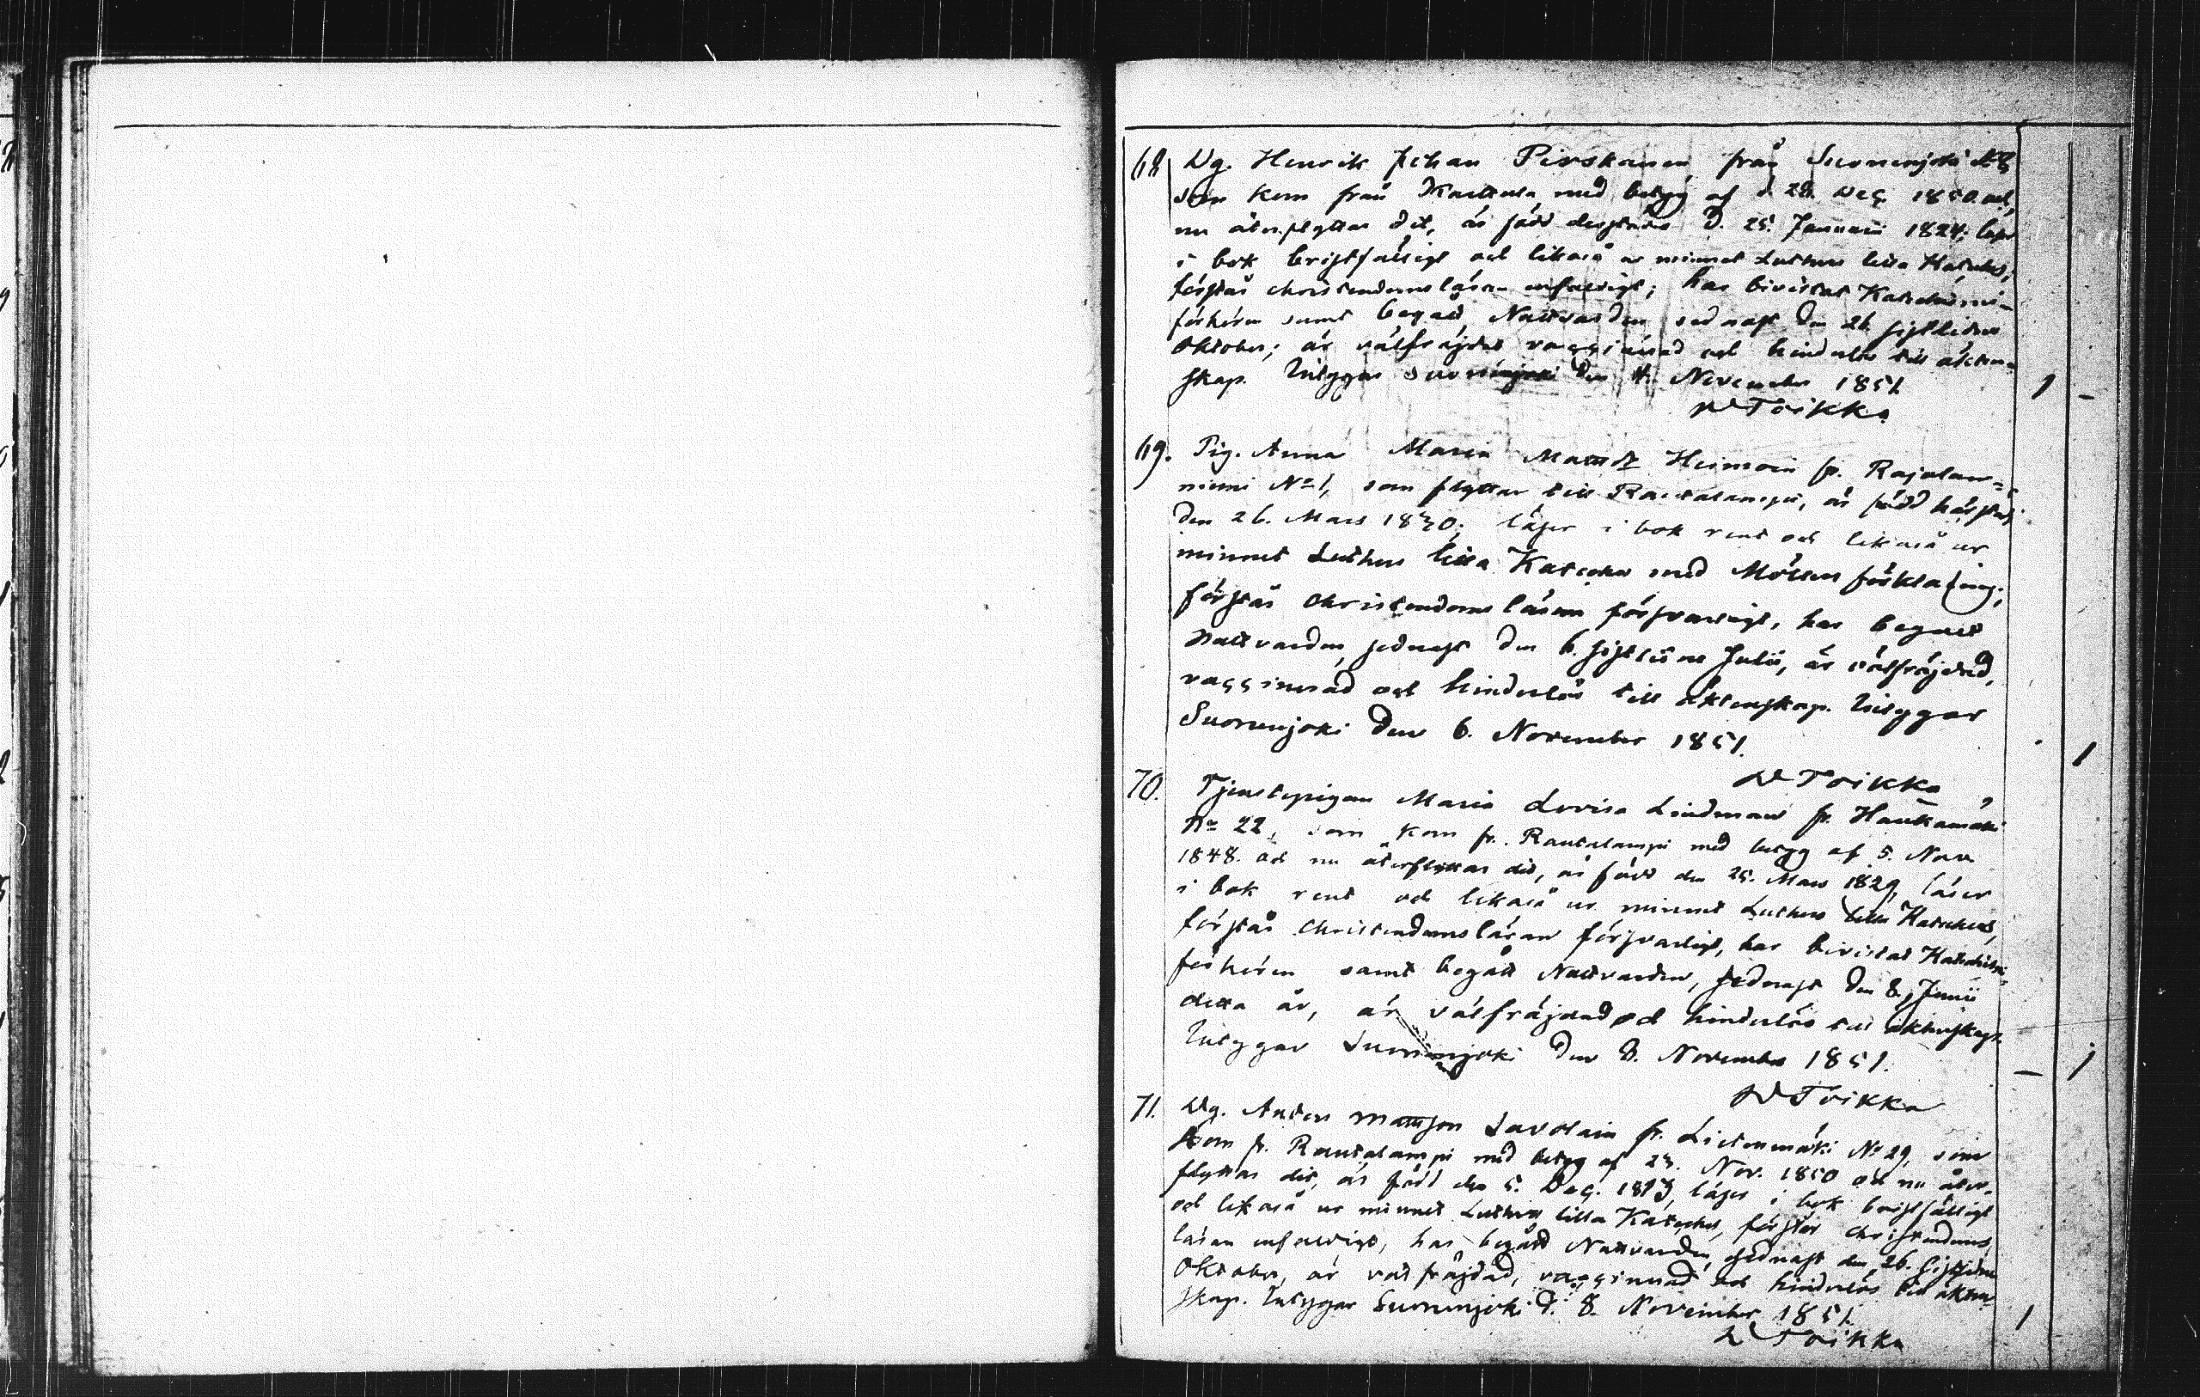 68 Dg. Henrik Johan Pirskanen från Suonenjoki № 8
som kom från Karttula med betyg af d. 28. Dec. 1850. och
nu återflyttar dit, är född dersteds d. 25. Januari 1824; läser
i bok bristfäligt och likaså ur minnet Luthers lilla Kateches,
förstår christendomsläran enfaldigt; har bivistat Katechismi-
förhören samt begått Nattvarden sednast den 26 sistliden
Oktober; är välfräjdad vaccinerad och hinderlös till äkten-
skap. Intygar Suonenjoki den 4. November 1851
W Toikka
1 –
69. Pig. Anna Maria Mattsdr Heimoin fr. Rajalan-
niemi № 1, som flyttar till Rautalampi, är född härstäds
den 26. Mars 1830; läser i bok rent och likaså ur
minnet Luthers lilla Kateches med Möllers förklaring;
förstår christendomsläran försvarligt, har begått
Nattvarden, sednast den 6. sistlidne Julii, är välfräjdad,
vaccinerad och hinderlös till äktenskap. Intygar
Suonenjoki den 6. November 1851.
W Toikka
1
70. Tjenstepigan Maria Lovisa Lindman fr. Haukamäki
№ 22, som kom fr. Rautalampi med betyg af 5. Nov.
1848. och nu återflyttar dit, är född den 25. Mars 1829, läser
i bok rent och likaså ur minnet Luthers lilla Kateches,
förstår christendomsläran försvarligt, har bivistat Katechismi-
förhören samt begått Nattvarden, sednast den 8. Junii
detta år, är välfräjdad och hinderlös till äktenskap.
Intygar Suonenjoki den 8. November 1851.
W Toikka
– 1
71. Dg. Anders Mattsson Savolain fr. Lietenmäki № 29, som
kom fr. Rautalampi med betyg af 23. Nov. 1850 och nu åter-
flyttar dit, är född den 5. Dec. 1813, läser i bok bristfälligt
och likaså ur minnet Luthers lilla Kateches, förstår christendoms
läran enfaldigt, har begått Nattvarden, sednast den 26. sistlidne
Oktober, är välfräjdad, vaccinerad och hinderlös till äkten-
skap. Intygar Suonenjoki d. 8. November 1851.
W Toikka
1